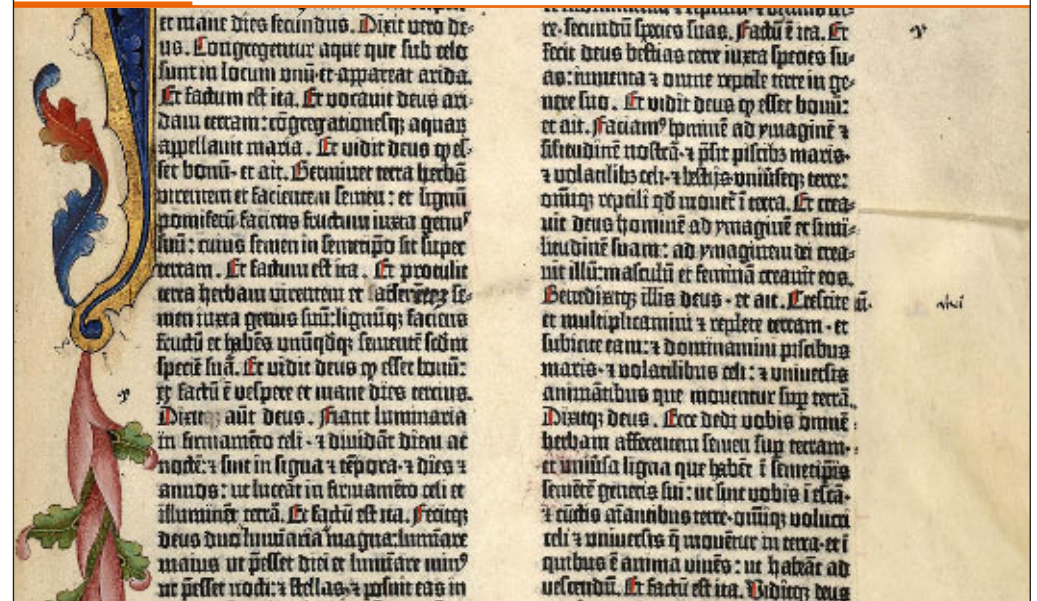 et mane dies secundus. Dixit vero de-
us. Congregentur aque que sub celo
sunt in locum unū et appareat arida.
Et factum est ita. Et vocavit deus ari-
dam terram: cōgregationesq; aquaꝝ
appellavit maria. Et vidit deus ꝙ es-
set bonū · et ait. Germinet terra herbā
virentem et facientem semen: et lignū
pomiferū faciens fructum iuxta genꝰ
suū: cuius semen in semetipō sit super
terram. Et factum est ita. Et protulit
terra herbam virentem et se-
men iuxta genus suū: lignūq; faciens
fructū et habēs unūqdq; sementē scdm
speciē suā. Et vidit deus ꝙ esset bonū:
et factū ē vespere et mane dies tercius.
Dixitq; aūt deus. Fiant luminaria
in firmamēto celi · ⁊ dividāt diem ac
noctē: ⁊ sint in signa ⁊ tēpora · ⁊ dies ⁊
annos: ut luceāt in firmamēto celi et
illuminēt terrā. Et factū est ita. Fecitq;
deus duo luminaria magna: lumīare
maius ut p̄esset diei et lumīare minꝰ
ut p̄esset nocti: ⁊ stellas · ⁊ posuit eas in
re · secundū species suas. Factū ē ita. Et
fecit deus bestias terre iuxta species su-
as: iumenta ⁊ omne reptile terre in ge-
nere suo. Et vidit deus ꝙ esset bonū:
et ait. Faciamꝰ hominē ad ymaginē ⁊
silitudinē nostrā · ⁊ p̄sit piscibꝫ maris ·
⁊ volatilibꝫ celi · ⁊ bestijs universeq; terre:
omīq; reptili qd movet ī terra. Et crea-
vit deus hominē ad ymaginē et simi-
litudinē suam: ad ymaginem dei crea-
vit illū: masculū et feminā creavit eos.
Benedixitq; illis deus · et ait. Crescite
et multiplicamini ⁊ replete terram · et
subicite eam: ⁊ dominamini piscibus
maris · ⁊ volatilibus celi: ⁊ universis
animātibus que moventur sup terrā.
Dixitq; deus. Ecce dedi vobis omnē
herbam afferentem semen sup terram ·
et univsa ligna que habēt ī semetipīs
semētē generis sui: ut sint vobis ī escā ·
⁊ cūctis aīantibus terre · omīq; volucri
celi ⁊ universis q̄ movētur in terra · et ī
quibus ē anima vivēs: ut habeāt ad
vescendū. Et factū est ita. Viditq; deus